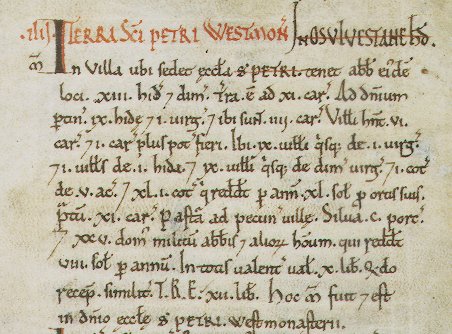 .iiij. TERRA SC̄I PETRI WESTMON̄. IN OSVLVESTANE HD̄.
M̄ In Villa ubi sedet æccl̄a S PETRI. tenet abb̄ ei'dē
loci. xiii. hid' 7 dimiđ. Tr̄a. ē ad xi. car'. Ad dn̄ium
ptin̄. ix. hidæ 7 i. virg' 7 ibi sun̄t. iiii. car'. Vill'i hn̄t. vi.
car'. 7 i. car' plus pot' fieri. Ibi. ix. uill'i q̄sq; de. i. uirg'.
7 i. uill's de. i. hida. 7 ix. uill'i q̄sq; de dim̄ uirg'. 7 i. cot'
de. v. ac'. 7 xl. i. cot' q' redd̄t p ann̄. xl. sol' p ortis suis.
P̄tū. xi. car'. Pastā ad pecun̄ uillæ. Silua. c. porc'.
7 xxv. dom' militū abb̄is 7 alioȝ hōum. qui redd̄t
viii. sol' p annū. In totis ualent' ual'. x. lib'. Q̄do
recep̄. similit'. T.R.E. xii. lib'. Hoc m̄ fuit 7 est
in dn̄io æccl̄æ S PETRI. westmonasterii.